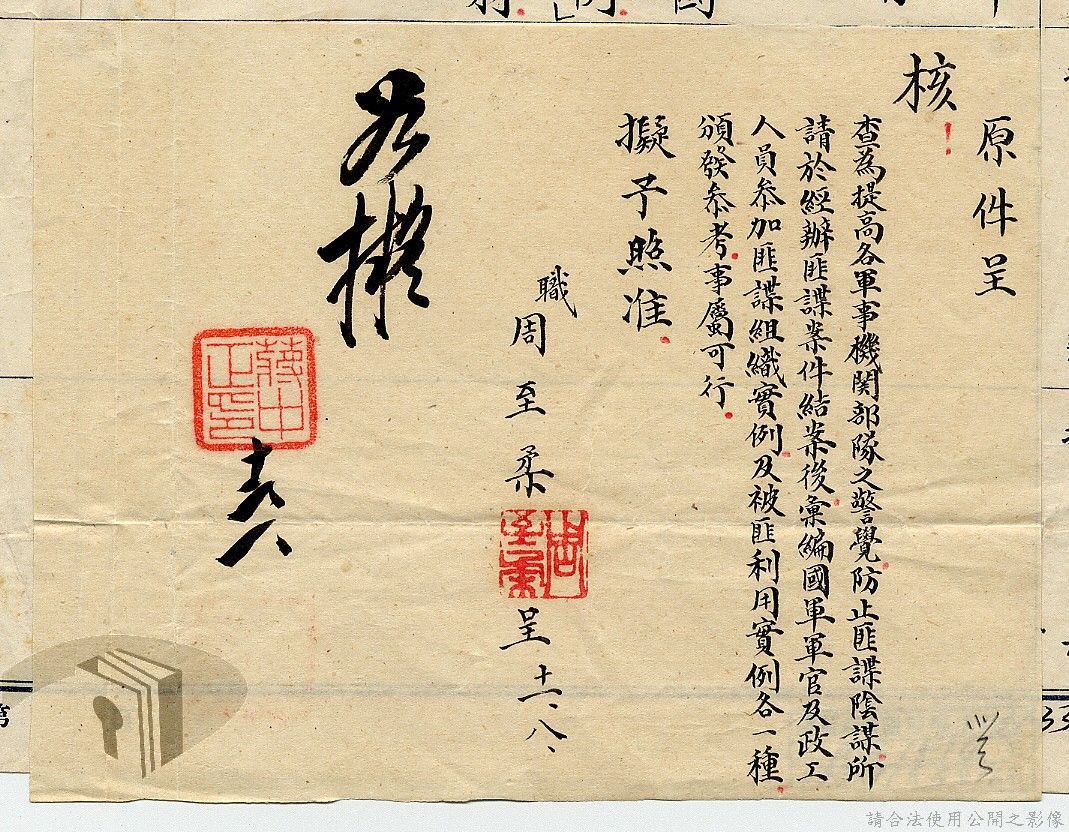 原件呈
核
查為提高各軍事機関部隊之警覺防止匪諜陰謀所
請於經辦匪諜案件結案後彙編國軍軍官及政工
人員参加匪諜組織實例及被匪利用實例各一種
頒發参考事屬可行
擬予照准
職周至柔
周至柔
呈 十一、八、
如擬
蔣中正印
請合法使用公開之影像